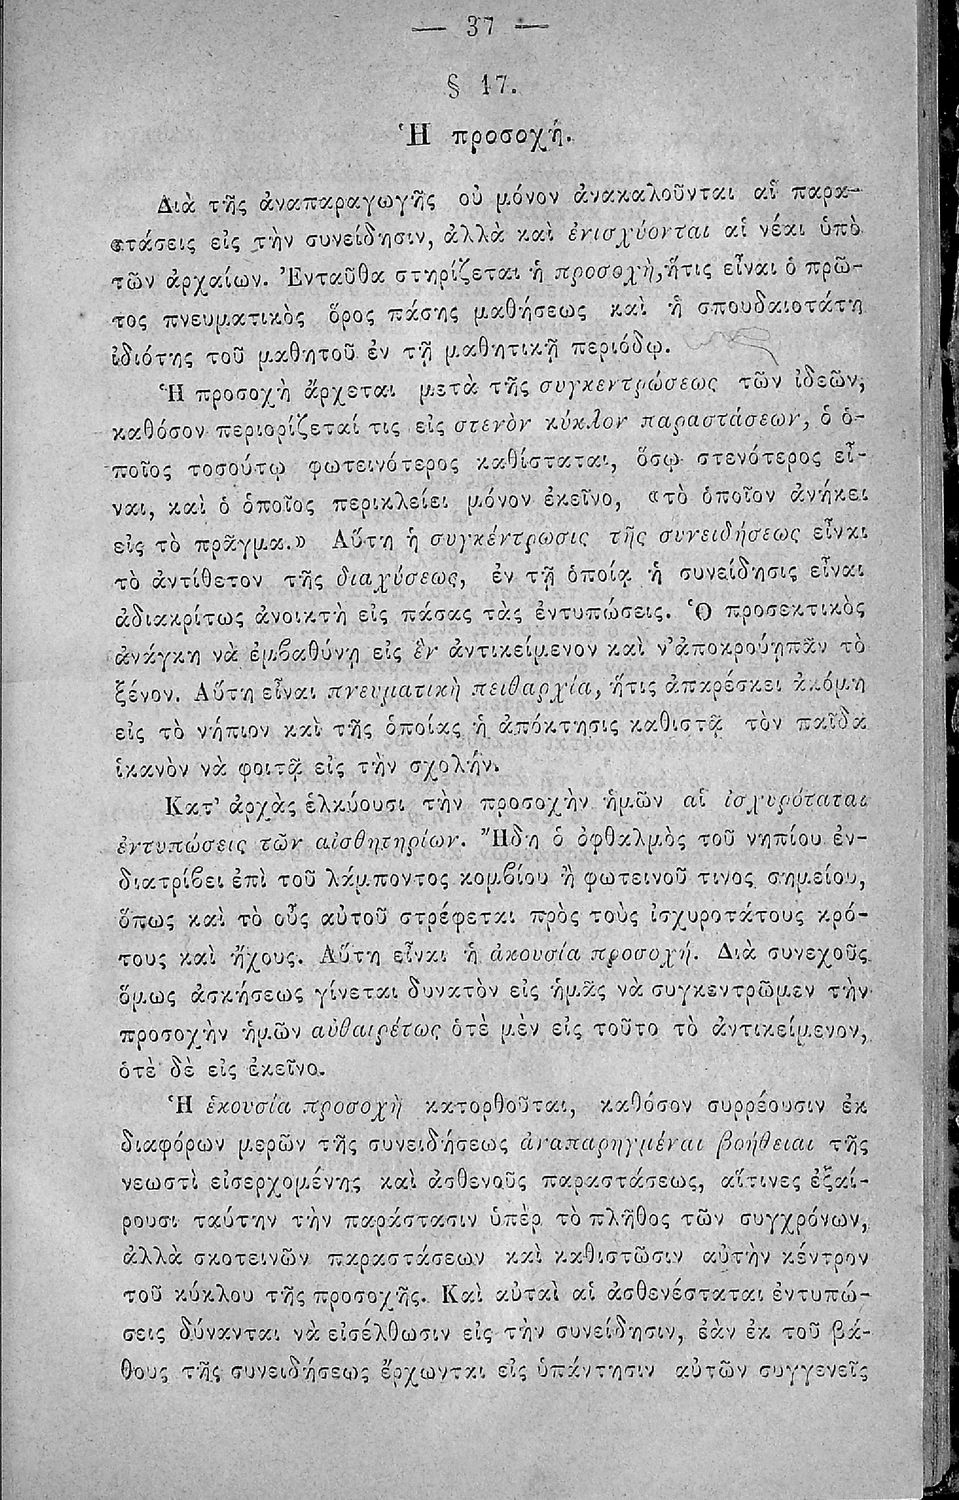 — 37 —
§ 17.
Ἡ προσοχή.
Διὰ τῆς ἀναπαραγωγῆς οὐ μόνον ἀνακαλοῦνται αἱ παρα-
στάσεις εἰς τὴν συνείδησιν, ἀλλὰ καὶ ἐνισχύονται αἱ νέαι ὑπὸ
τῶν ἀρχαίων. Ἐνταῦθα στηρίζεται ἡ προσοχὴ, ἥτις εἶναι ὁ πρῶ-
τος πνευματικὸς ὅρος πάσης μαθήσεως καὶ ἡ σπουδαιοτάτη
ἰδιότης τοῦ μαθητοῦ ἐν τῇ μαθητικῇ περιόδῳ.
Ἡ προσοχὴ ἄρχεται μετὰ τῆς συγκεντρώσεως τῶν ἰδεῶν,
καθόσον περιορίζεταί τις εἰς στενὸν κύκλον παραστάσεων, ὁ ὁ-
ποῖος τοσούτῳ φωτεινότερος καθίσταται, ὅσῳ στενότερος εἶ-
ναι, καὶ ὁ ὁποῖος περικλείει μόνον ἐκεῖνο, «τὸ ὁποῖον ἀνήκει
εἰς τὸ πρᾶγμα.» Αὕτη ἡ συγκέντρωσις τῆς συνειδήσεως εἶναι
τὸ ἀντίθετον τῆς διαχύσεως, ἐν τῇ ὁποίᾳ ἡ συνείδησις εἶναι
ἀδιακρίτως ἀνοικτὴ εἰς πάσας τὰς ἐντυπώσεις. Ὁ προσεκτικὸς
ἀνάγκη νὰ ἐμβαθύνῃ εἰς ἓν ἀντικείμενον καὶ ν' ἀποκρούῃ πᾶν τὸ
ξένον. Αὕτη εἶναι πνευματικὴ πειθαρχία, ἥτις ἀπαρέσκει ἀκόμη
εἰς τὸ νήπιον καὶ τῆς ὁποίας ἡ ἀπόκτησις καθιστᾷ τὸν παῖδα
ἱκανὸν νὰ φοιτᾷ εἰς τὴν σχολήν.
Κατ' ἀρχὰς ἑλκύουσι τὴν προσοχὴν ἡμῶν αἱ ἰσχυρόταται
ἐντυπώσεις τῶν αἰσθητηρίων. Ἤδη ὁ ὀφθαλμὸς τοῦ νηπίου ἐν-
διατρίβει ἐπὶ τοῦ λάμποντος κομβίου ἢ φωτεινοῦ τινος σημείου,
ὅπως καὶ τὸ οὖς αὐτοῦ στρέφεται πρὸς τοὺς ἰσχυροτάτους κρό-
τους καὶ ἤχους. Αὕτη εἶναι ἡ ἀκουσία προσοχή. Διὰ συνεχοῦς
ὅμως ἀσκήσεως γίνεται δυνατὸν εἰς ἡμᾶς νὰ συγκεντρῶμεν τὴν
προσοχὴν ἡμῶν αὐθαιρέτως ὁτὲ μὲν εἰς τοῦτο τὸ ἀντικείμενον,
ὁτὲ δὲ εἰς ἐκεῖνο.
Ἡ ἑκουσία προσοχὴ κατορθοῦται, καθόσον συρρέουσιν ἐκ
διαφόρων μερῶν τῆς συνειδήσεως ἀναπαρηγμέναι βοήθειαι τῆς
νεωστὶ εἰσερχομένης καὶ ἀσθενοῦς παραστάσεως, αἵτινες ἐξαί-
ρουσι ταύτην τὴν παράστασιν ὑπὲρ τὸ πλῆθος τῶν συγχρόνων,
ἀλλὰ σκοτεινῶν παραστάσεων καὶ καθιστῶσιν αὐτὴν κέντρον
τοῦ κύκλου τῆς προσοχῆς. Καὶ αὐταὶ αἱ ἀσθενέσταται ἐντυπώ-
σεις δύνανται νὰ εἰσέλθωσιν εἰς τὴν συνείδησιν, ἐὰν ἐκ τοῦ βά-
θους τῆς συνειδήσεως ἔρχωνται εἰς ὑπάντησιν αὐτῶν συγγενεῖς